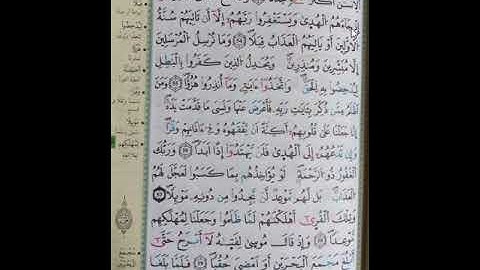 ٱلْإِنسَٰنُ أَكْثَرَ
جَآءَهُمُ ٱلْهُدَىٰ وَيَسْتَغْفِرُوا۟ رَبَّهُمْ إِلَّآ أَن تَأْتِيَهُمْ سُنَّةُ
ٱلْأَوَّلِينَ أَوْ يَأْتِيَهُمُ ٱلْعَذَابُ قُبُلًا ۝ وَمَا نُرْسِلُ ٱلْمُرْسَلِينَ
إِلَّا مُبَشِّرِينَ وَمُنذِرِينَ ۚ وَيُجَٰدِلُ ٱلَّذِينَ كَفَرُوا۟ بِٱلْبَٰطِلِ
لِيُدْحِضُوا۟ بِهِ ٱلْحَقَّ ۖ وَٱتَّخَذُوٓا۟ ءَايَٰتِى وَمَآ أُنذِرُوا۟ هُزُوًا ۝ وَمَنْ
أَظْلَمُ مِمَّن ذُكِّرَ بِـَٔايَٰتِ رَبِّهِۦ فَأَعْرَضَ عَنْهَا وَنَسِىَ مَا قَدَّمَتْ يَدَاهُ ۚ
إِنَّا جَعَلْنَا عَلَىٰ قُلُوبِهِمْ أَكِنَّةً أَن يَفْقَهُوهُ وَفِىٓ ءَاذَانِهِمْ وَقْرًا ۖ
وَإِن تَدْعُهُمْ إِلَى ٱلْهُدَىٰ فَلَن يَهْتَدُوٓا۟ إِذًا أَبَدًا ۝ وَرَبُّكَ
ٱلْغَفُورُ ذُو ٱلرَّحْمَةِ ۖ لَوْ يُؤَاخِذُهُم بِمَا كَسَبُوا۟ لَعَجَّلَ لَهُمُ
ٱلْعَذَابَ ۚ بَل لَّهُم مَّوْعِدٌ لَّن يَجِدُوا۟ مِن دُونِهِۦ مَوْئِلًا ۝
وَتِلْكَ ٱلْقُرَىٰٓ أَهْلَكْنَٰهُمْ لَمَّا ظَلَمُوا۟ وَجَعَلْنَا لِمَهْلِكِهِم
مَّوْعِدًا ۝ وَإِذْ قَالَ مُوسَىٰ لِفَتَىٰهُ لَآ أَبْرَحُ حَتَّىٰٓ
أَبْلُغَ مَجْمَعَ ٱلْبَحْرَيْنِ أَوْ أَمْضِىَ حُقُبًا ۝ فَلَمَّا بَلَغَا